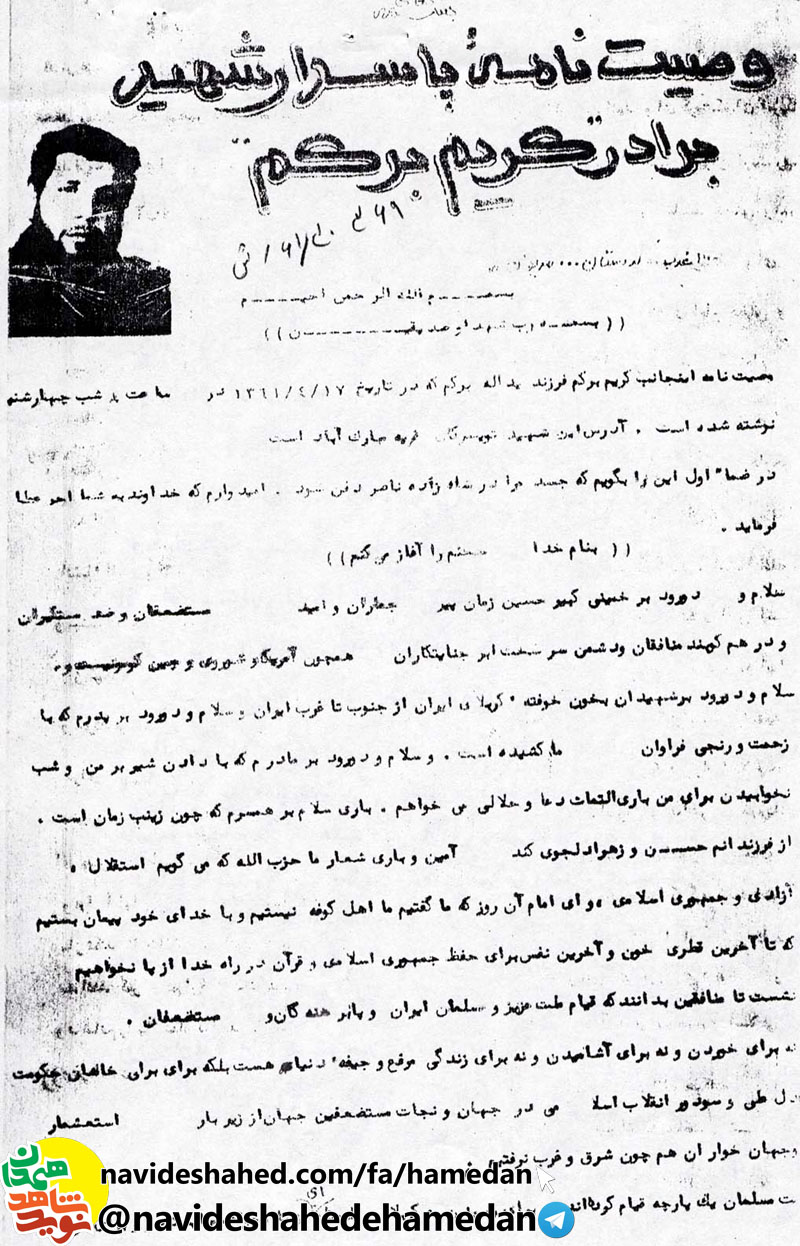 وصیت نامهٔ پاسدار شهید
برادر کریم برکم
بسمه رب شهدا و صدیقین
وصیت نامه اینجانب کریم برکم فرزند یداله برکم که در تاریخ ۱۳۶۱/۴/۱۷ در ساعت شب چهارشنبه
نوشته شده است . آدرس این شهید تویسرکان قریه مبارك آباد است
در ضما اول این را بگویم که جسد مرا در شاه زاده ناصر دفن شود . امیدوارم که خداوند به شما اجر عطا
فرماید .
(( بنام خدا سخنم را آغاز می کنم ))
سلام و دورود بر خمینی کبیر حسین زمان پیر جماران و امید مستضعفان و ضد مستکبران
و در هم کوبنده منافقان ودشمن سر سخت ابر جنایتکاران همچون آمریکا و شوروی و
سلام و دورود برشهیدان بخون خوفته کربلای ایران از جنوب تا غرب ایران و سلام و دورود بر پدرم که با
زحمت و رنجی فراوان ما کشیده است . و سلام و دورود بر مادرم که با دادن شیر بر من و شب
نخوابیدن برای من باری التمات دعا و حلالی می خواهم . باری سلام بر همسرم که چون زینب زمان است .
از فرزندانم حسن و زهرا دلجوی کند آمین و باری شعار ما حزب الله که می گویم استقلال .
آزادی و جمهوری اسلامی . و ای امام آن روز که ما گفتیم ما اهل کوفه نیستیم و با خدای خود پیمان بستیم
که تا آخرین قطری خون و آخرین نفس برای حفظ جمهوری اسلامی و قرآن در راه خدا از پا نخواهیم
نشست تا منافقین بدانند که قیام ملت عزیز و مسلمان ایران و پابر هنه گان و مستضعفان .
نه برای خوردن و نه برای آشامیدن و نه برای زندگی مرفع و جیفه دنیای هست بلکه برای برای حکومت
عدل علی و سودور انقلاب اسلا می در جهان و نجات مستضعفین جهان از زیر بار استعثمار
وجهان خوار ان هم چون شرق و غرب نرفتیم .
ملت مسلمان یك پارچه قیام کرده اند
همدان
نوید شاهد
navideshahed.com/fa/hamedan
@navideshahedehamedan